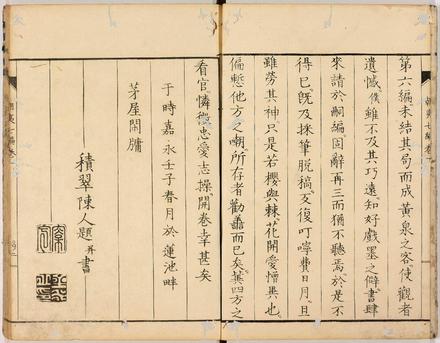 第六編未結其局而成黄泉之客使觀者
遺憾僕雖不及其巧遠知好戲墨之僻書肆
來請於嗣編固辭再三而猶不聽焉於是不
得已既及採筆脱稿又復叮嚀費日月且
雖勞其神只是若櫻與棘花開愛憎異也
偏慙他方之嘲所存者勸善而已矣冀四方之
看官憐微忠愛志操開卷幸甚矣
于時嘉永壬子春月於蓮池畔
茅屋閑牖
積翠陳人題并書